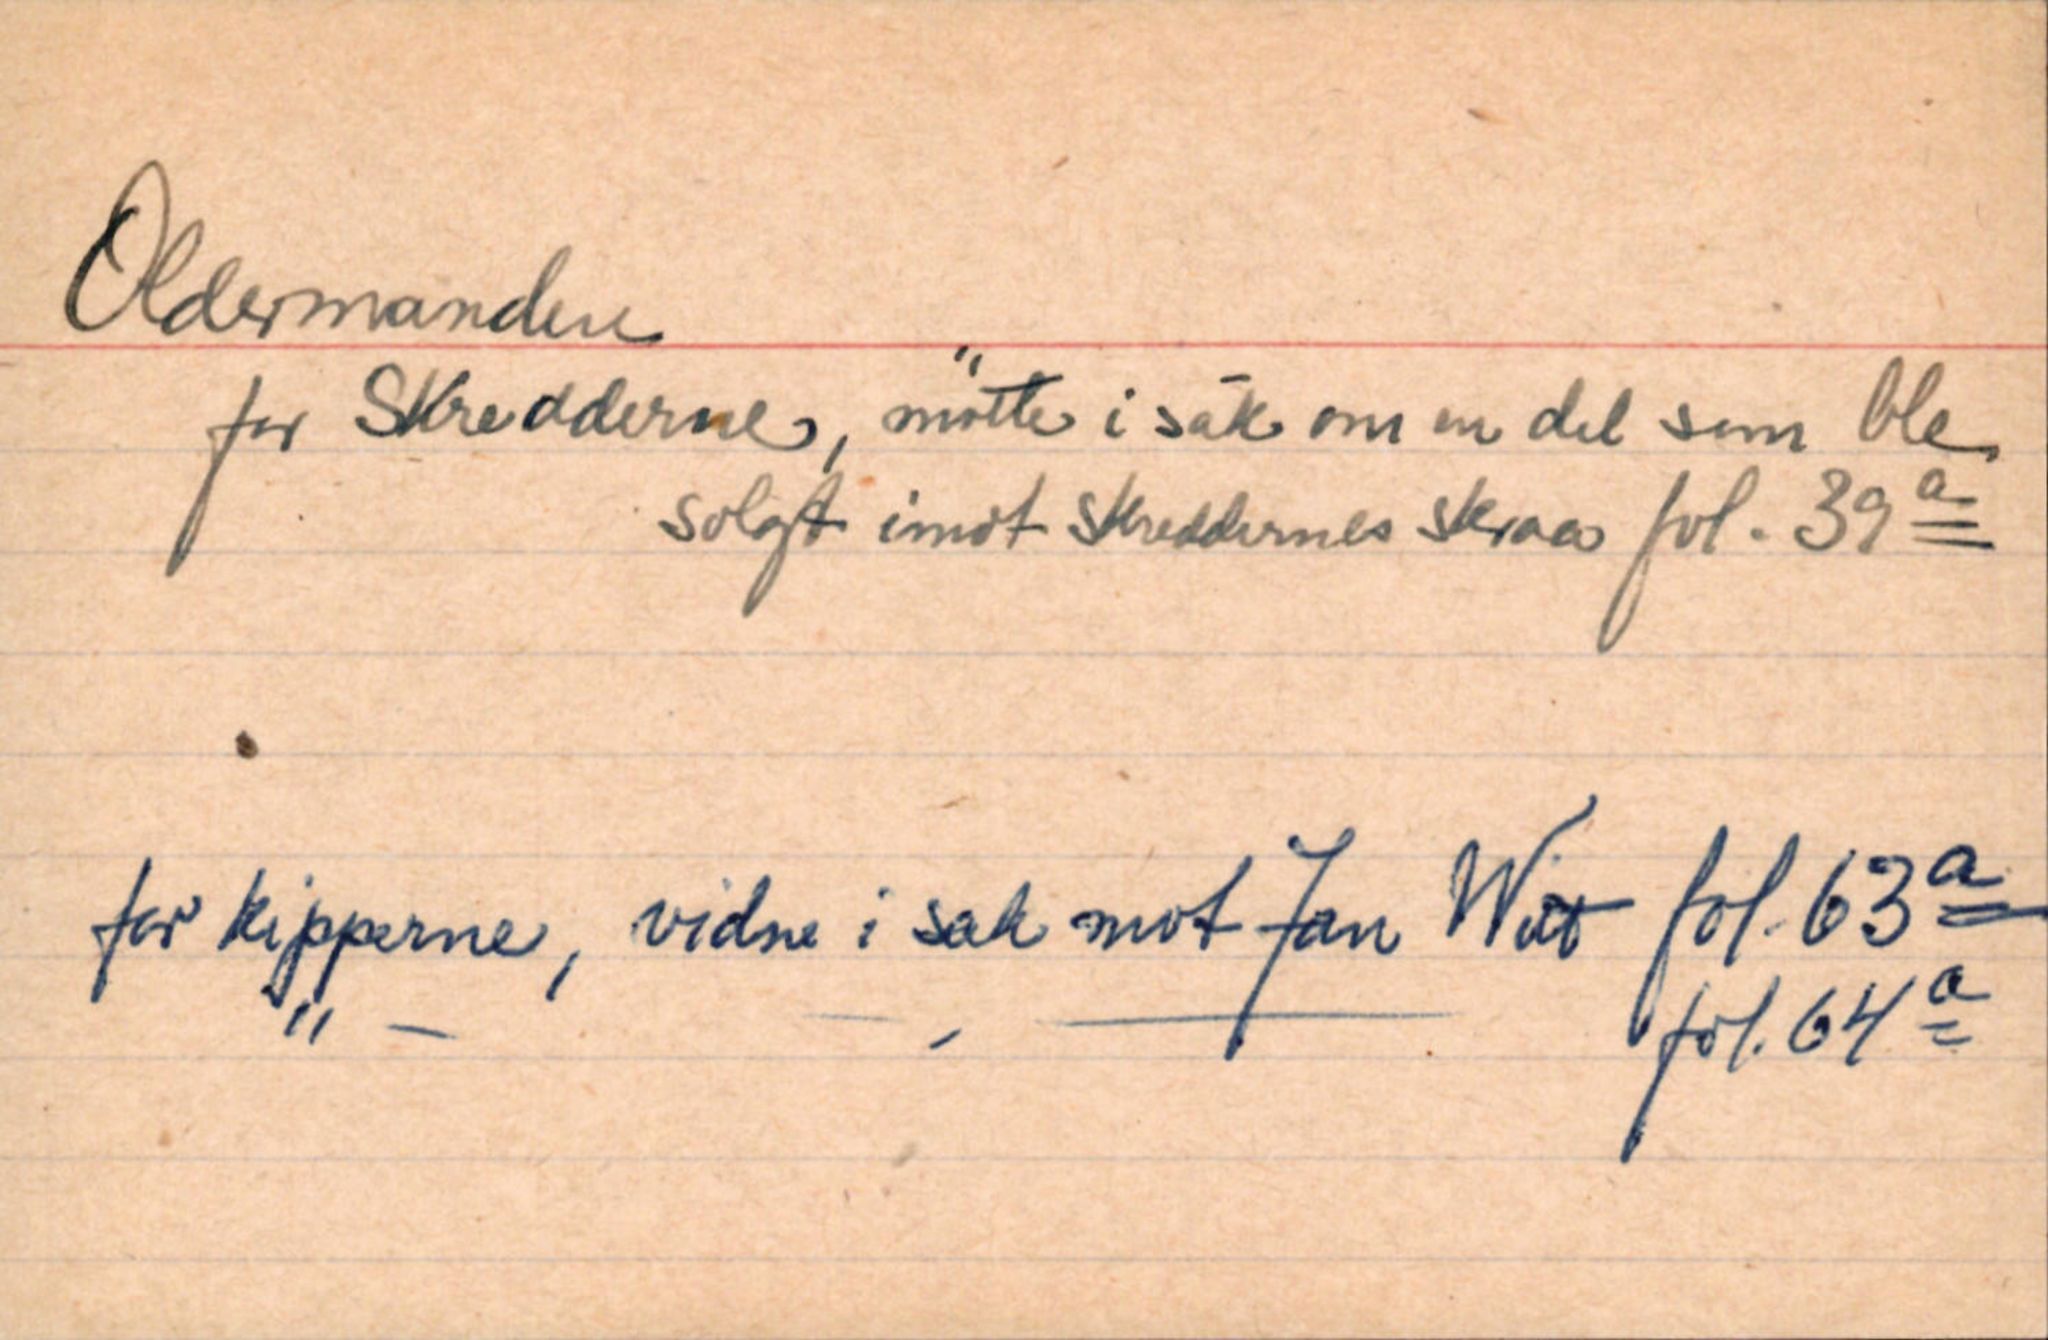 Oldermanden
for Skredderne, mötte i sak om en del som ble
solgt imot skreddernes skraa fol. 39 a
for kipperne, vidne i sak mot Jan Witt fol. 63 a
" — — , — fol. 64 a